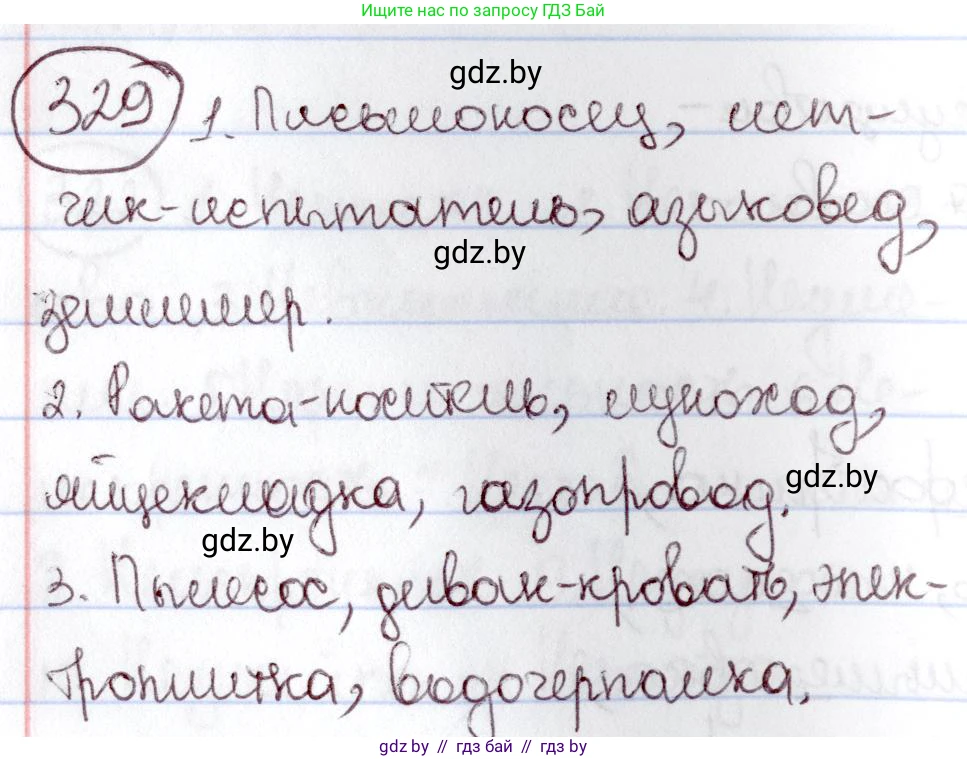 Ищите нас по запросу ГДЗ Бай
gdz.by
329 1. Письмоносец, лет-
чик-испытатель, языковед,
gdz.by
землемер.
2. Ракета-носитель, луноход,
gdz.by
яйцекладка, газопровод.
gdz.by
3. Пылесос, диван-кровать, элек-
троплитка, водочерпалка.
gdz.by // гдз бай // гдз by